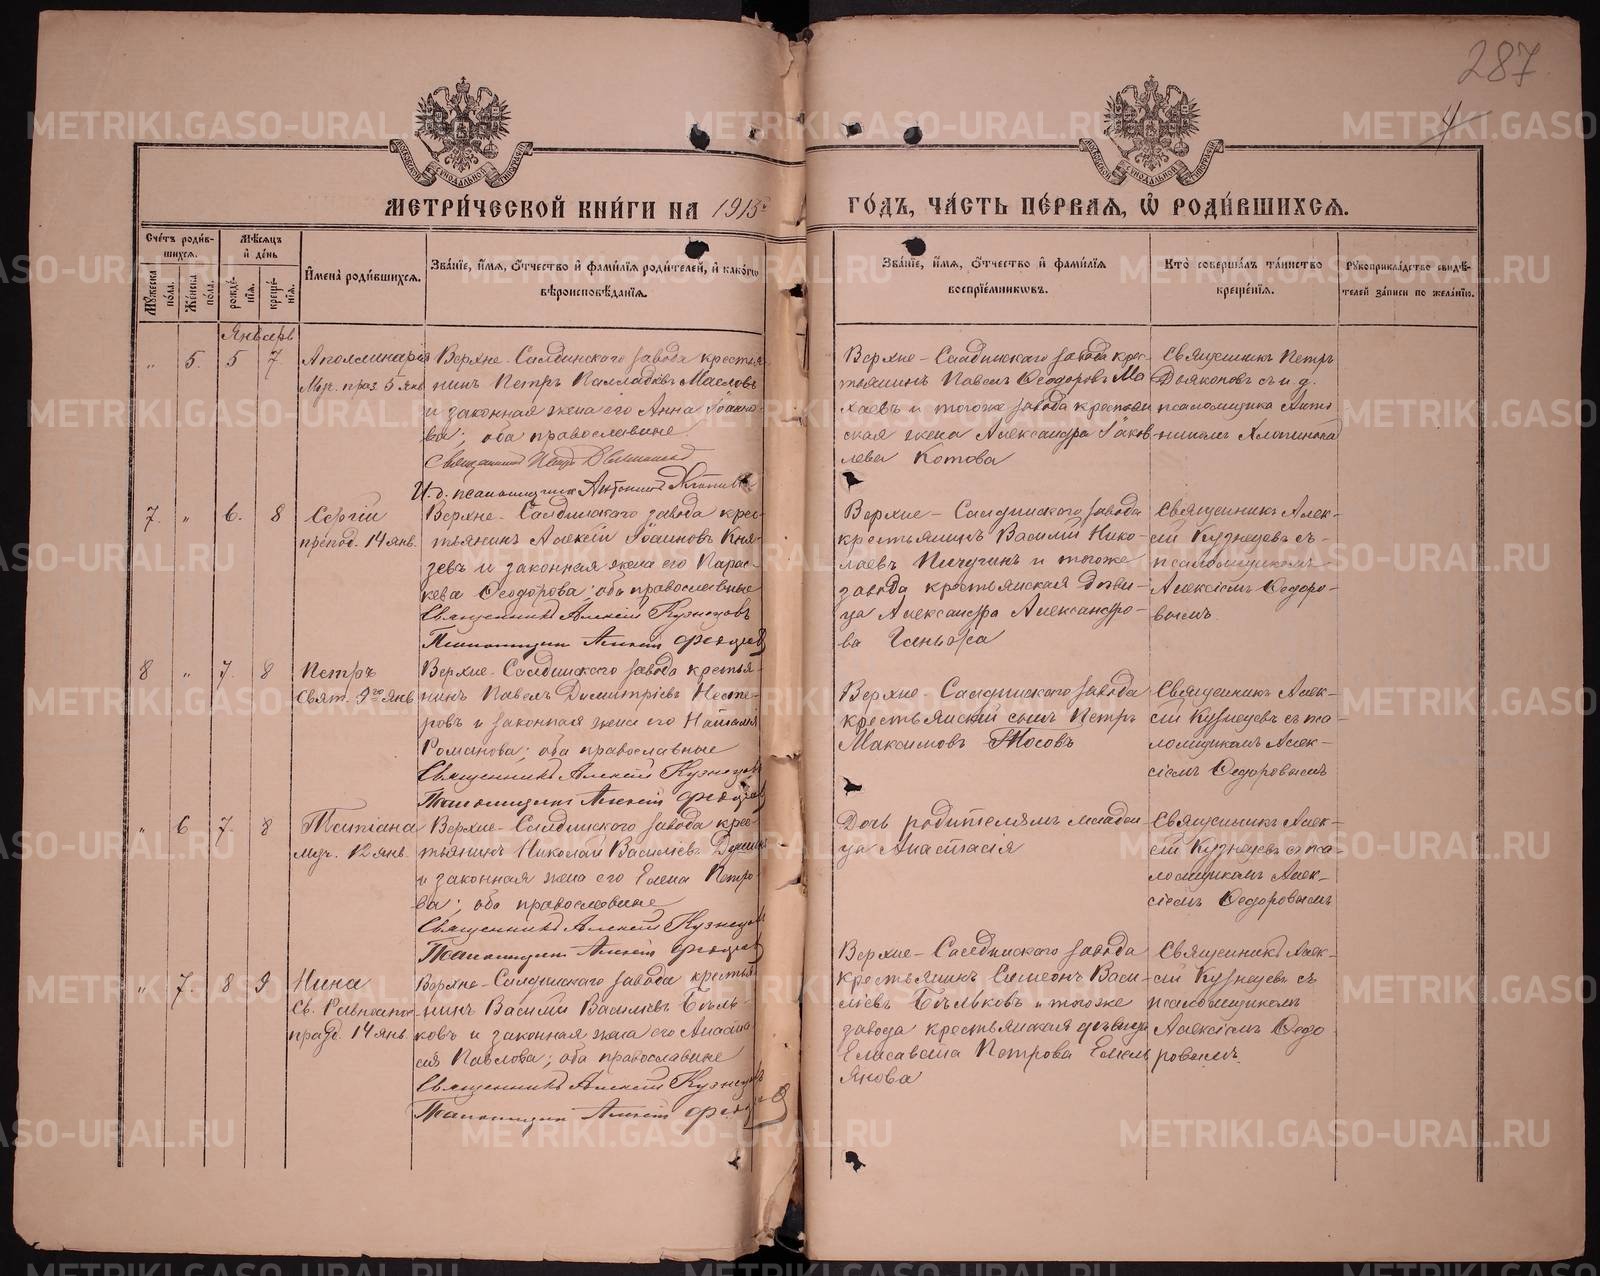 287
4
МЕТРИ́ЧЕСКОЙ КНИ́ГИ НА 1913й ГО́ДЪ, ЧА́СТЬ ПЕ́РВАЯ, Ѡ РОДИ́ВШИХСЯ.
Сче́тъ роди́в-
шихся.
Мѣ́сяцъ
и де́нь
Мꙋ́жеска по́ла.
Же́нска по́ла.
рожде́-
нїя.
креще́-
нїя.
И҆мена̀ роди́вшихся.
Зва́нїе, и҆́мя, о҆́тчество и҆ фами́лїя роди́телей, и҆ како́гѡ
вѣроисповѣ́данїя.
Зва́нїе, и҆́мя, о҆́тчество и҆ фами́лїя
воспрїе́мникѡвъ.
Кто̀ соверша́лъ та́инство
креще́нїя.
Рꙋкоприкла́дство свидѣ́-
телей за́писи по жела́нїю.
Январь
„ 5. 5 7.
Аполлинарія
Мч. праз 5 янв
Верхне-Салдинскаго завода крестья
нинъ Петръ Палладіевъ Масловъ
и законная жена его Анна Іоанно-
ва; оба православные
Священникъ Петръ Дьяконовъ
И.д. псаломщика Антонинъ
Верхне-Салдинскаго завода крес-
тьянинъ Павелъ Ѳеодоровъ Ма
хаевъ и тогоже завода крестьян
ская жена Александра Іаков-
лева Котова
Священникъ Петръ
Дьяконовъ съ и.д.
псаломщика Анто
ниномъ
7. „ 6. 8
Сергій
препод. 14 янв.
Верхне-Салдинскаго завода крес-
тьянинъ Алексій Іоанновъ Кня-
зевъ и законная жена его Парас-
кева Ѳеодорова; оба православные
Священникъ Алексій Кузнецовъ
Псаломщикъ Алексій Ѳедоровъ
Верхне-Салдинскаго завода
крестьянинъ Василій Нико-
лаевъ Пичугинъ и тогоже
завода крестьянская дѣви-
ца Александра Александро-
ва
Священникъ Алек-
сій Кузнецовъ съ
псаломщикомъ
Алексіемъ Ѳедоро-
вымъ.
8 „ 7. 8
Петръ
Свят. 9го янв.
Верхне-Салдинскаго завода крестья-
нинъ Павелъ Димитріевъ Несте-
ровъ и законная жена его Наталія
Романова; оба православные
Священникъ Алексій Кузнецовъ
Псаломщикъ Алексій Ѳедоровъ
Верхне-Салдинскаго завода
крестьянскій сынъ Петръ
Максимовъ Носовъ
Священникъ Алек-
сій Кузнецовъ съ пса
ломщикомъ Алек-
сіемъ Ѳедоровымъ
„ 6 7. 8
Татіана
мч. 12 янв.
Верхне-Салдинскаго завода крес-
тьянинъ Николай Василіевъ
и законная жена его Елена Петро
ва; оба православные
Священникъ Алексій Кузнецовъ
Псаломщикъ Алексій Ѳедоровъ
Дочь родителямъ младен
ца Анастасія
Священникъ Алек-
сій Кузнецовъ съ пса
ломщикомъ Алек-
сіемъ Ѳедоровымъ
„ 7. 8 9
Нина
Св. Равноапост
празд. 14 янв.
Верхне-Салдинскаго завода крестья
нинъ Василій Василіевъ Бѣль-
ковъ и законная жена его Анаста
сія Павлова; оба православные
Священникъ Алексій Кузнецовъ
Псаломщикъ Алексій Ѳедоровъ
Верхне-Салдинскаго завода
крестьянинъ Симеонъ Васи-
ліевъ Бѣльковъ и тогоже
завода крестьянская дѣвица
Елисавета Петрова Емель
янова
Священникъ Алек-
сій Кузнецовъ съ
псаломщикомъ
Алексіемъ Ѳедо
ровымъ.